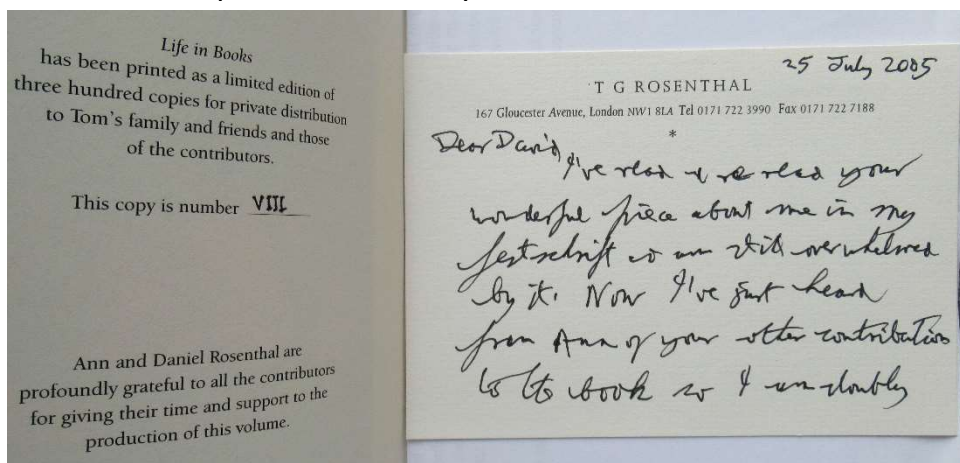 Life in Books
has been printed as a limited edition of
three hundred copies for private distribution
to Tom's family and friends and those
of the contributors.
This copy is number VIII
Ann and Daniel Rosenthal are
profoundly grateful to all the contributors
for giving their time and support to the
production of this volume.
25 July 2005
T G ROSENTHAL
167 Gloucester Avenue, London NW1 8LA Tel 0171 722 3990 Fax 0171 722 7188
*
Dear David,
I've read & re read your
wonderful piece about me in my
festschrift & am still overwhelmed
by it. Now I've just heard
from Ann of your other contribution
to the book so I am doubly